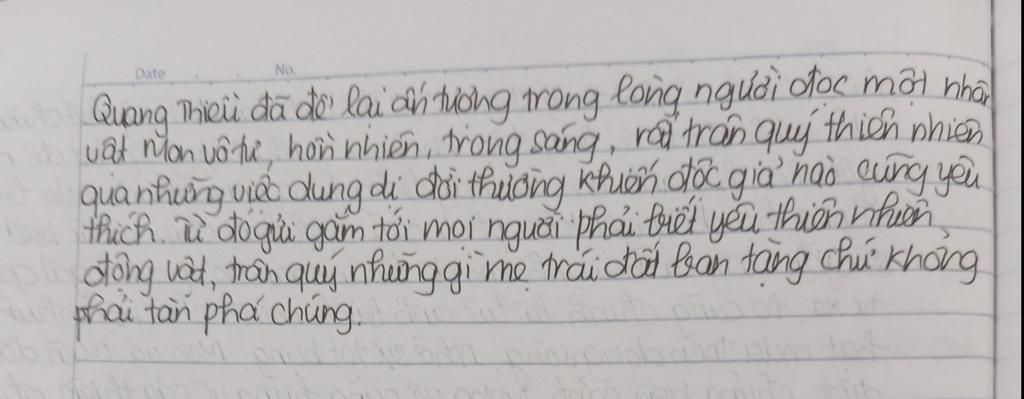 Date No.
Quang Thiều đã để lại ấn tượng trong lòng người đọc một nhân
vật Mon vô tư, hồn nhiên, trong sáng, rất trân quý thiên nhiên
qua những việc dung dị đời thường khiến độc giả nào cũng yêu
thích. Từ đó gửi gắm tới mọi người phải biết yêu thiên nhiên,
động vật, trân quý những gì mẹ trái đất ban tặng chứ không
phải tàn phá chúng.